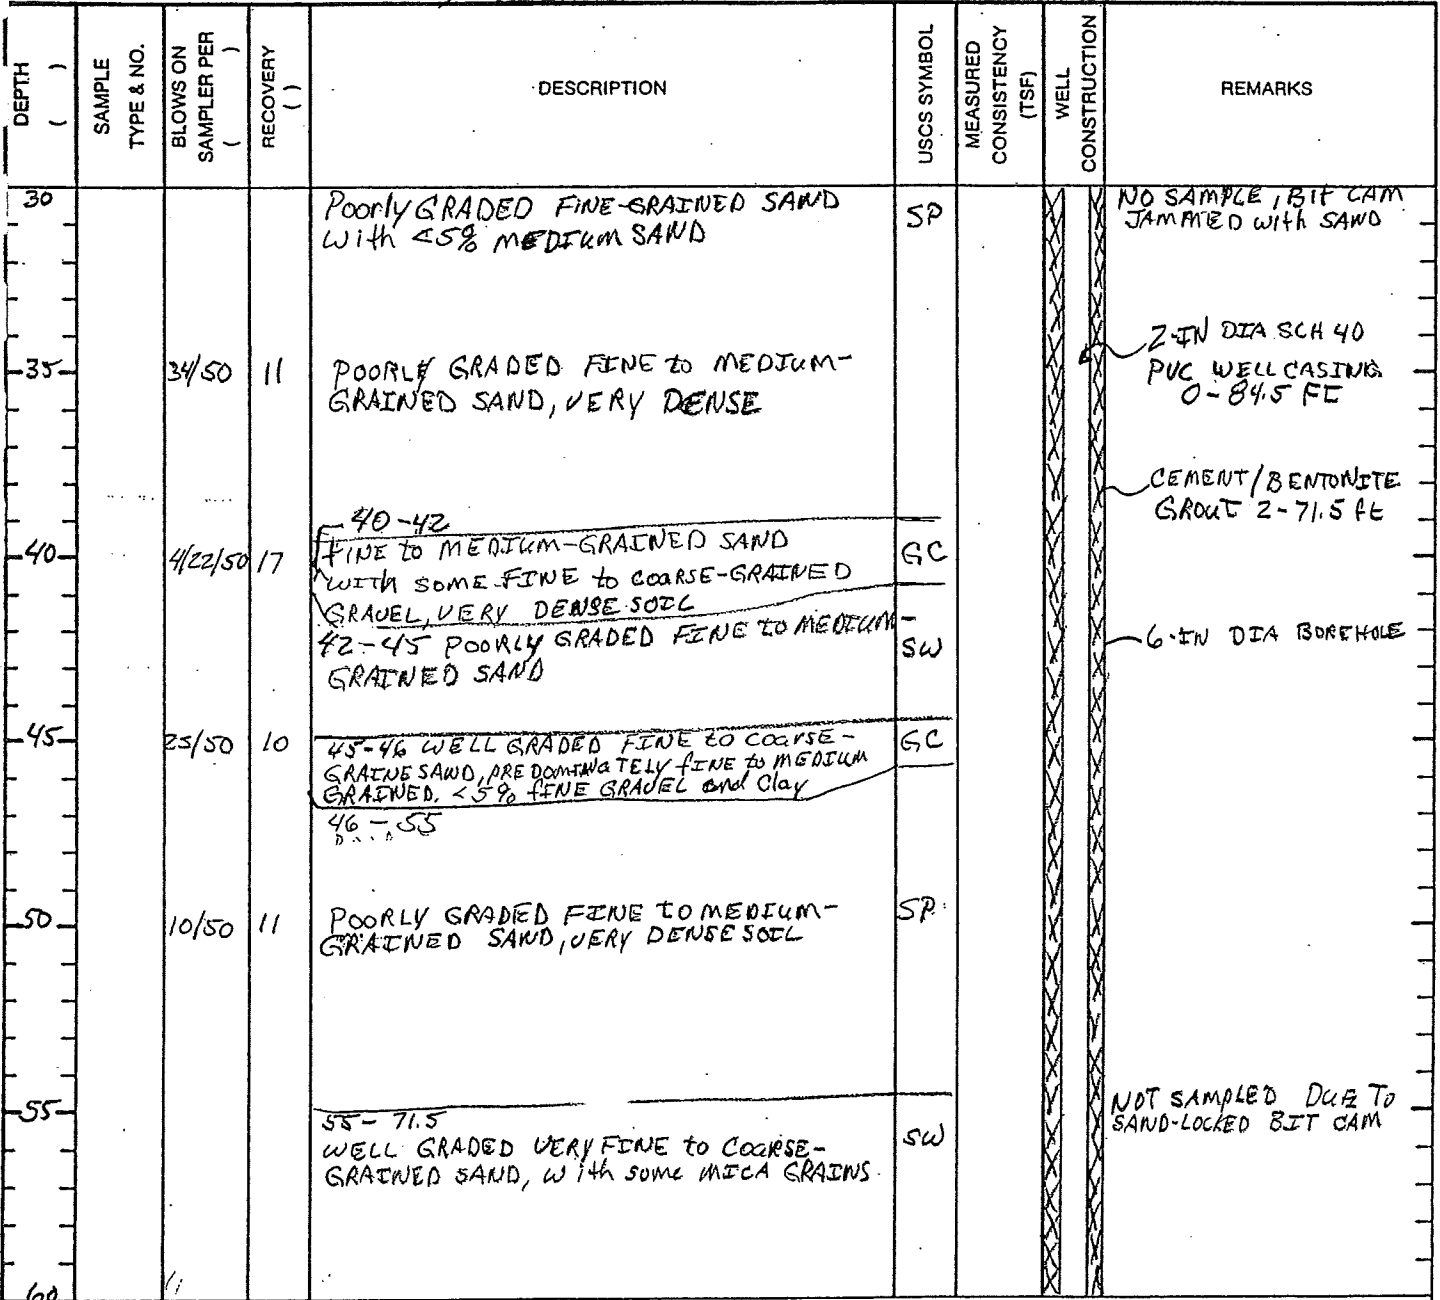 DEPTH ( )
SAMPLE
TYPE & NO.
BLOWS ON
SAMPLER PER
( )
RECOVERY
( )
DESCRIPTION
USCS SYMBOL
MEASURED
CONSISTENCY
(TSF)
WELL
CONSTRUCTION
REMARKS
30
Poorly GRADED FINE-GRAINED SAND
with <5% MEDIUM SAND
SP
NO SAMPLE, BIT CAM
JAMMED with SAND
2-IN DIA SCH 40
PVC WELL CASING
0-84.5 FT
35
34/50
11
POORLY GRADED FINE to MEDIUM-
GRAINED SAND, VERY DENSE
CEMENT/BENTONITE
GROUT 2-71.5 ft
40-42
40
4/22/50
17
FINE to MEDIUM-GRAINED SAND
with some FINE to COARSE-GRAINED
GRAVEL, VERY DENSE SOIL
GC
42-45 POORLY GRADED FINE TO MEDIUM-
GRAINED SAND
SW
6-IN DIA BOREHOLE
45
25/50
10
45-46 WELL GRADED FINE to COARSE-
GRAINE SAND, PREDOMINATELY FINE to MEDIUM
GRAINED. <5% FINE GRAVEL and Clay
GC
46-55
50
10/50
11
POORLY GRADED FINE TO MEDIUM-
GRAINED SAND, VERY DENSE SOIL
SP
55
55-71.5
WELL GRADED VERY FINE to COARSE-
GRAINED SAND, with some MICA GRAINS
SW
NOT SAMPLED DUE TO
SAND-LOCKED BIT CAM
60